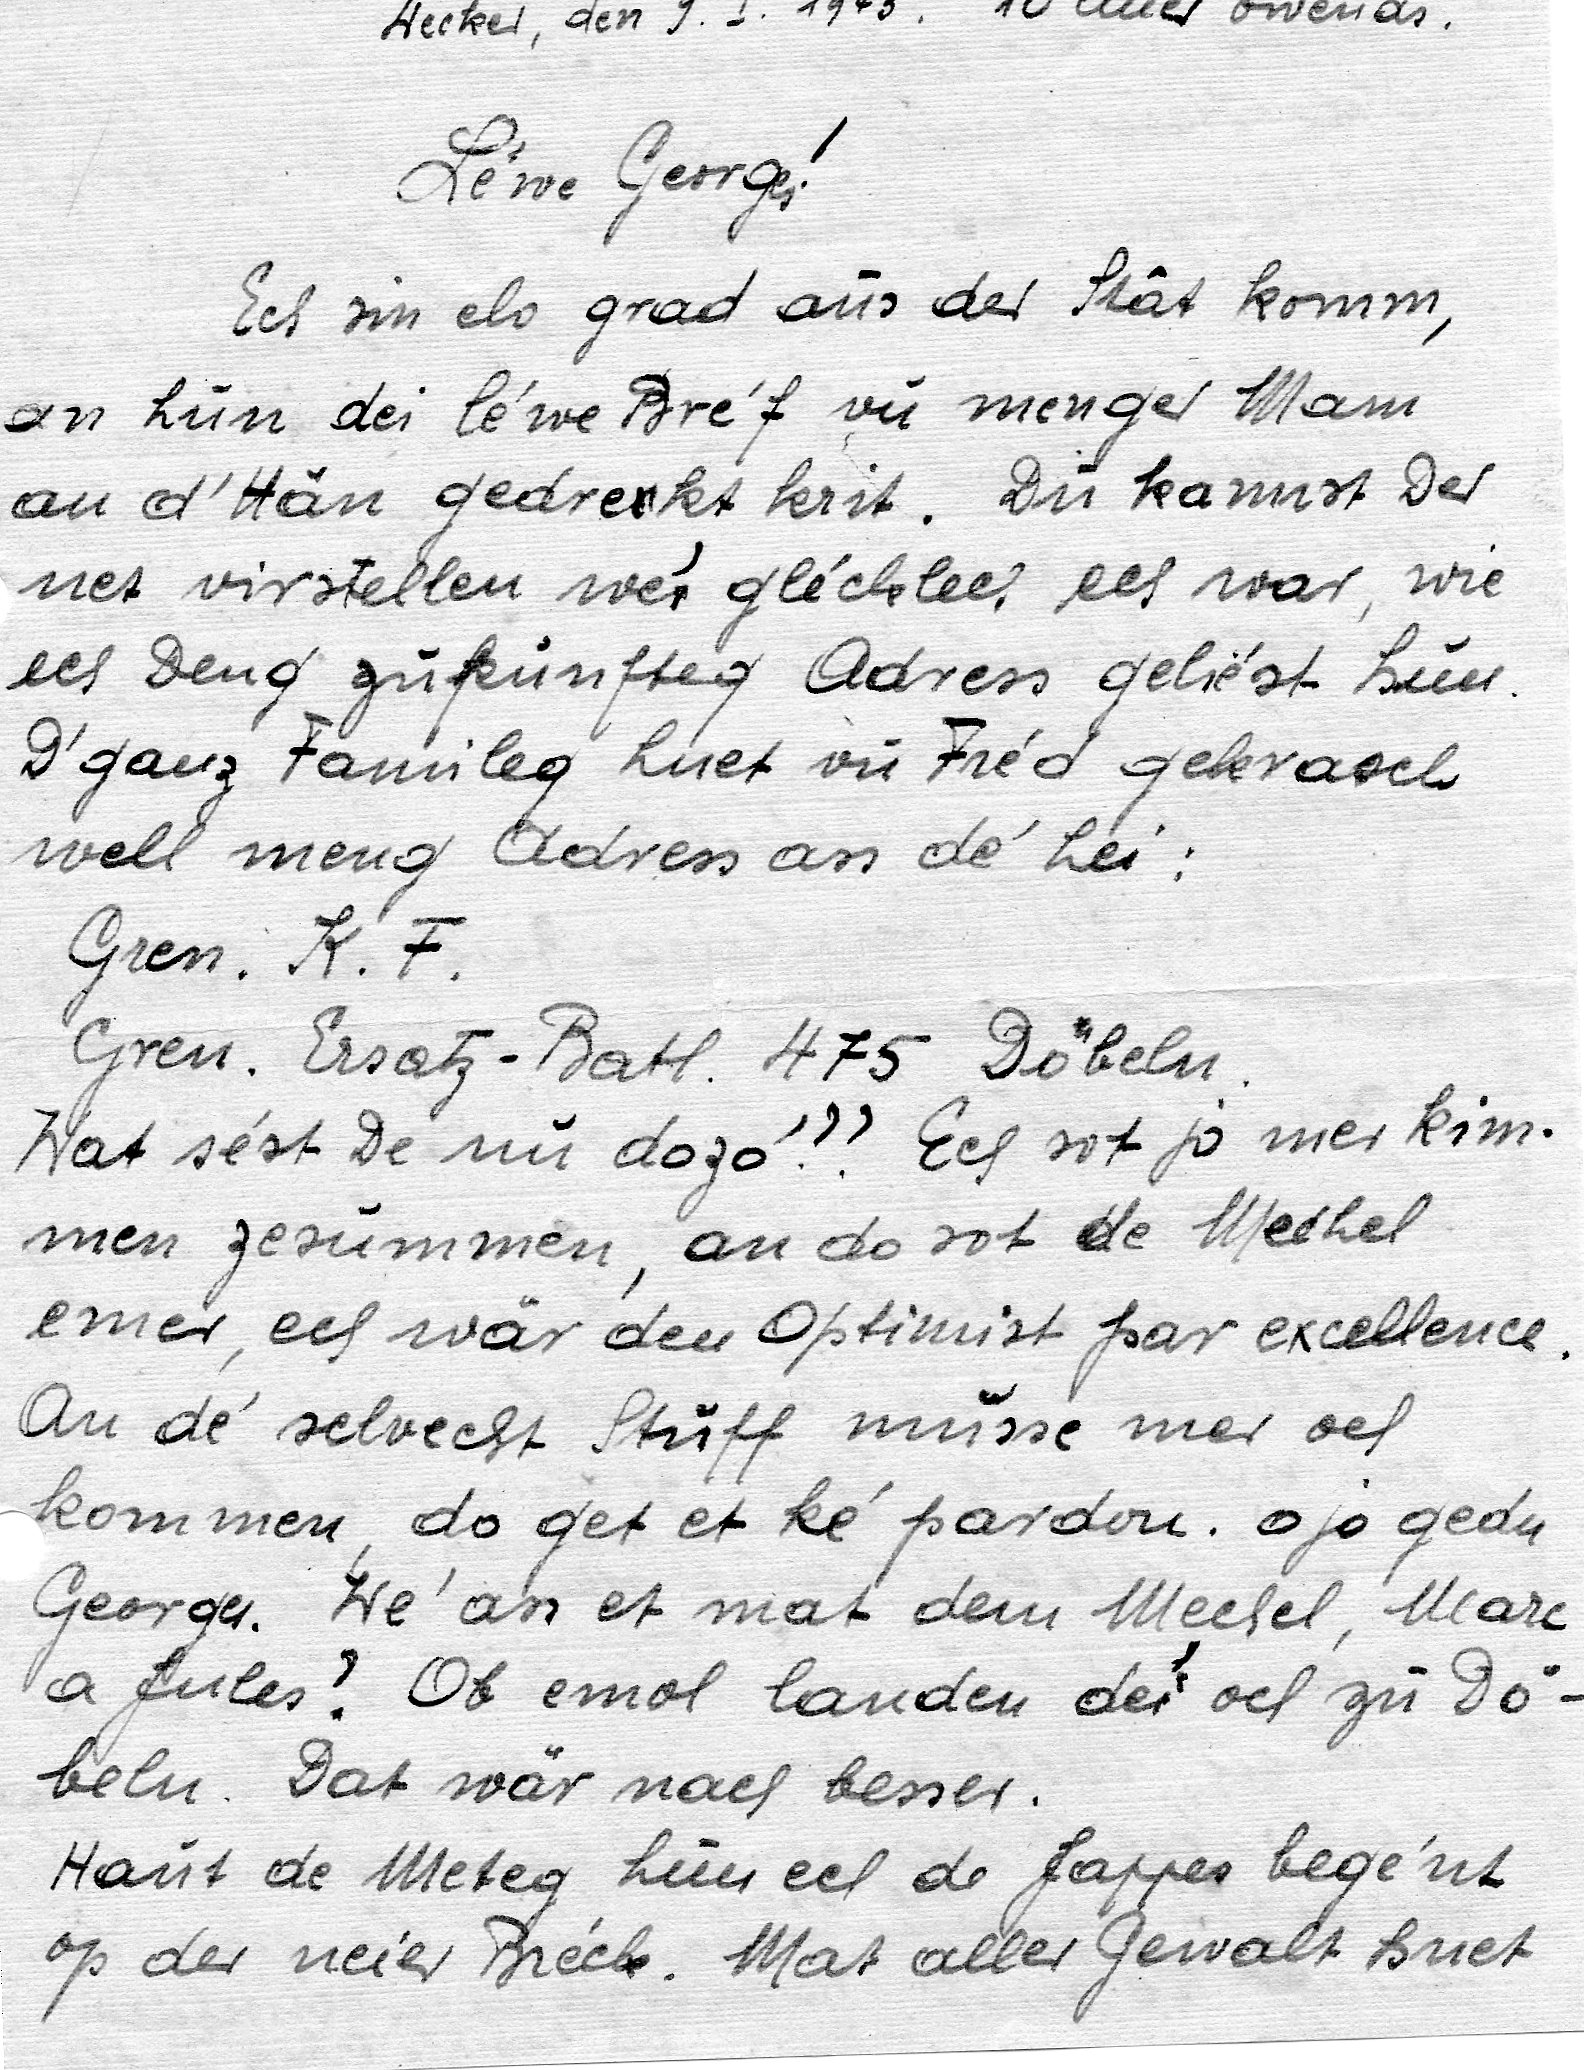 Hecker, den 9. I. 1943. 10 Auer owends.
Léwe Georges!
Ech sin elo grad aŭs der Stât komm,
an hŭn dei léwe Bréf vŭ menger Mam
an d'Hän gedreckt krit. Dŭ kannst Der
net virstellen wéi gléchlech ech war, wie
ech Deng zŭkünfteg Adress geliést hŭn.
D'ganz Famileg huet vŭ Fréd gekrasch
well meng Adress ass dé hei:
Gren. K. F.
Gren. Ersatz-Batl. 475 Döbeln.
Wat sést De nŭ dozó!?? Ech sot jo mer kim-
men zesŭmmen, an do sot de Mechel
emer, ech wär den Optimist par excellence.
An dé selvecht Stŭff mŭsse mer och
kommen, do get et ké pardon. o jo gedu
Georges. Wé ass et mat dem Mechel, Marc
a Jules? Ob emol landen déi och zŭ Dö-
beln. Dat wär nach besser.
Haŭt de Metteg hŭn ech de Jappes begént
op der neier Bréck. Mat aller Gewalt huet